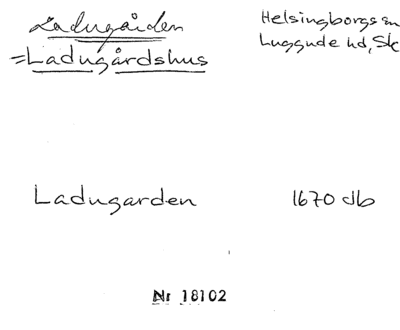 Ladugården
=Ladugårdshus
Helsingborgs sn
Luggude hd, Sk
Ladugarden
1670 db
Nr 18102